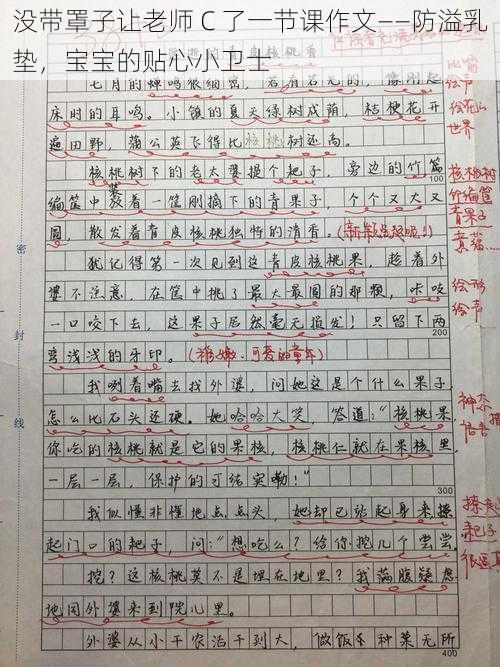 没带罩子让老师 C 了一节课作文——防溢乳
垫，宝宝的贴心小卫士
核桃香
七月的蝉鸣很细密，若有若无的，像刚起
床时的耳鸣。小镇的夏天绿树成荫，桔梗花开
遍田野，蒲公英飞得比核桃树还高。
核桃树下的老太婆摸个耙子，旁边的竹篇
编筐中装着一筐刚摘下的青果子，个个又大又
圆，散发着青皮核桃独特的清香。
犹记得第一次见到这青皮核桃果，趁着外
婆不注意，在筐中挑了最大最圆的那颗，咔吱
一口咬下去，这果子居然毫无损发！只留下两
弯浅浅的牙印。（稚嫩、可爱的童年）
我咧着嘴去找外婆，问她这是个什么果子，
怎么比石头还硬。她哈哈大笑，答道：“核桃果，
你吃的核桃就是它的果核，核桃仁就在果核里，
一层一层，保护的可结实嘞！”
我似懂非懂地点点头，她却已站起身来操
起门口的耙子，问：“想吃么？给你挖几个尝尝。
挖？这核桃莫不是埋在地里？我满腹疑虑
地同外婆来到院儿里。
外婆从小干农活干到大，做饭和种菜无所
100
200
300
400
密
封
线
比喻
绘声
世界
核桃树
竹编筐
青果子
绘形
绘声
神态
耙子